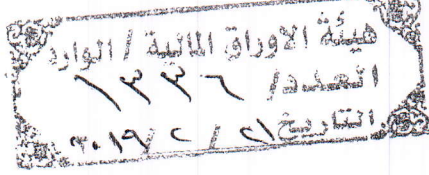 هيئة الاوراق المالية / الوارد
العدد / ١٣٣٦
التاريخ ٢١ / ٢ / ٢٠١٩